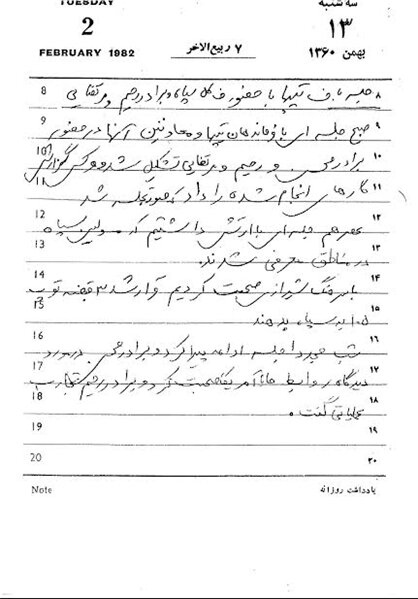 TUESDAY
سه شنبه
2
۱۳
FEBRUARY 1982
۷ ربیع الاخر
بهمن ۱۳۶۰
8 جلسه با ف تیپها با حضور ف کل سپاه و برادر رحیم و ۸
9 صبح جلسه ای با فرماندهان تیپها و معاونین آنها در حضور ۹
10 برادر محسن و رحیم و تشکیل شد و هر کس گزارش ۱۰
11 کارهای انجام شده را داد که صورتجلسه شد ۱۱
12 عصر هم جلسه ای با ارتش داشتیم که مسولین سپاه ۱۲
13 در مناطق معرفی شدند. ۱۳
14 با سرهنگ شیرازی صحبت کردیم قرار شد ۳ قبضه توپ ۱۴
15 ۱۰۵ به سپاه بدهند ۱۵
16 شب مجددا جلسه ادامه پیدا کرد و برادر محسن در مورد ۱۶
17 دیدگاه روابط ما با آمریکا صحبت کرد و برادر رحیم تجارب ۱۷
18 عملیاتی گفت. ۱۸
19 ۱۹
20 ۲۰
Note یادداشت روزانه